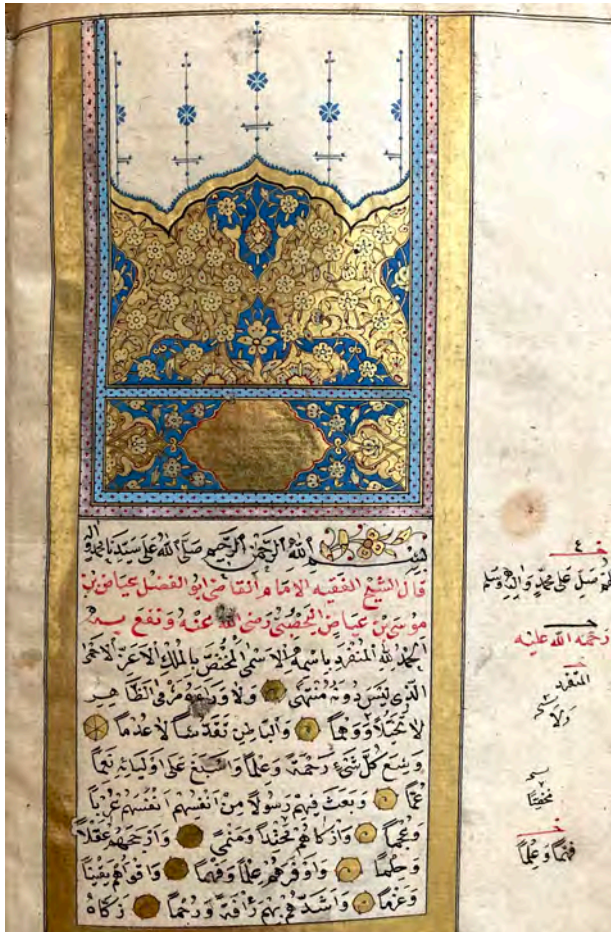 بسم الله الرحمن الرحيم صلى الله على سيدنا محمد واله
قال الشيخ الفقيه الامام القاضى ابو الفضل عياض بن
موسى بن عياض اليحصبى رضى الله عنه ونفع به
الحمد لله المنفرد باسمه الاسمى المختص بالملك الاعز الاحمى
الذى ليس دونه منتهى ولا وراءه مرمى الظاهر
لا تخيلا ووهما والباطن تقدسا لا عدما
وسع كل شىء رحمة وعلما واسبغ على اوليائه نعما
عما وبعث فيهم رسولا من انفسهم انفسهم عربا
وعجما وازكاهم محتدا ومنمى وارجحهم عقلا
وحلما واوفرهم علما وفهما واقواهم يقينا
وعزما واشدهم بهم رافة ورحما زكاه
صل على محمد واله وسلم
رحمة الله عليه
المتفرد
ولا
فهما وعلما